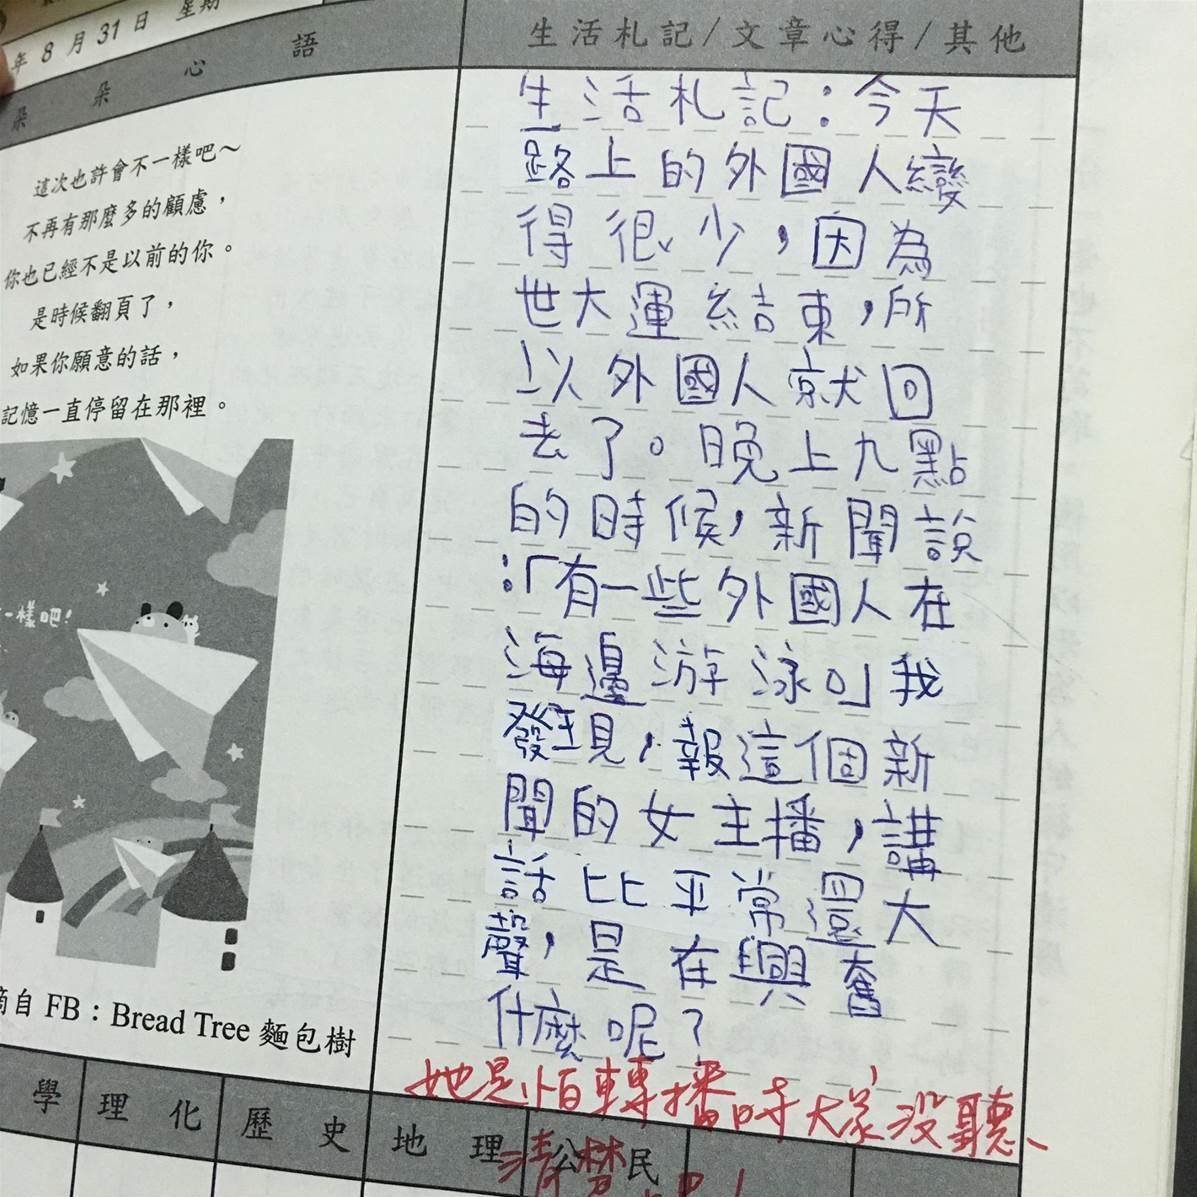 年 8 月 31 日 星期
朵 朵 心 語
這次也許會不一樣吧～
不再有那麼多的顧慮，
你也已經不是以前的你。
是時候翻頁了，
如果你願意的話，
記憶一直停留在那裡。
一樣吧！
摘自 FB：Bread Tree 麵包樹
生活札記/文章心得/其他
生活札記：今天
路上的外國人變
得很少，因為
世大運結束，所
以外國人就回
去了。晚上九點
的時候，新聞說
：「有一些外國人在
海邊游泳。」我
發現，報這個新
聞的女主播，講
話比平常還大
聲，是在興奮
什麼呢？
她是怕轉播時大家沒聽
清楚吧！
學 理 化 歷 史 地 理 公 民